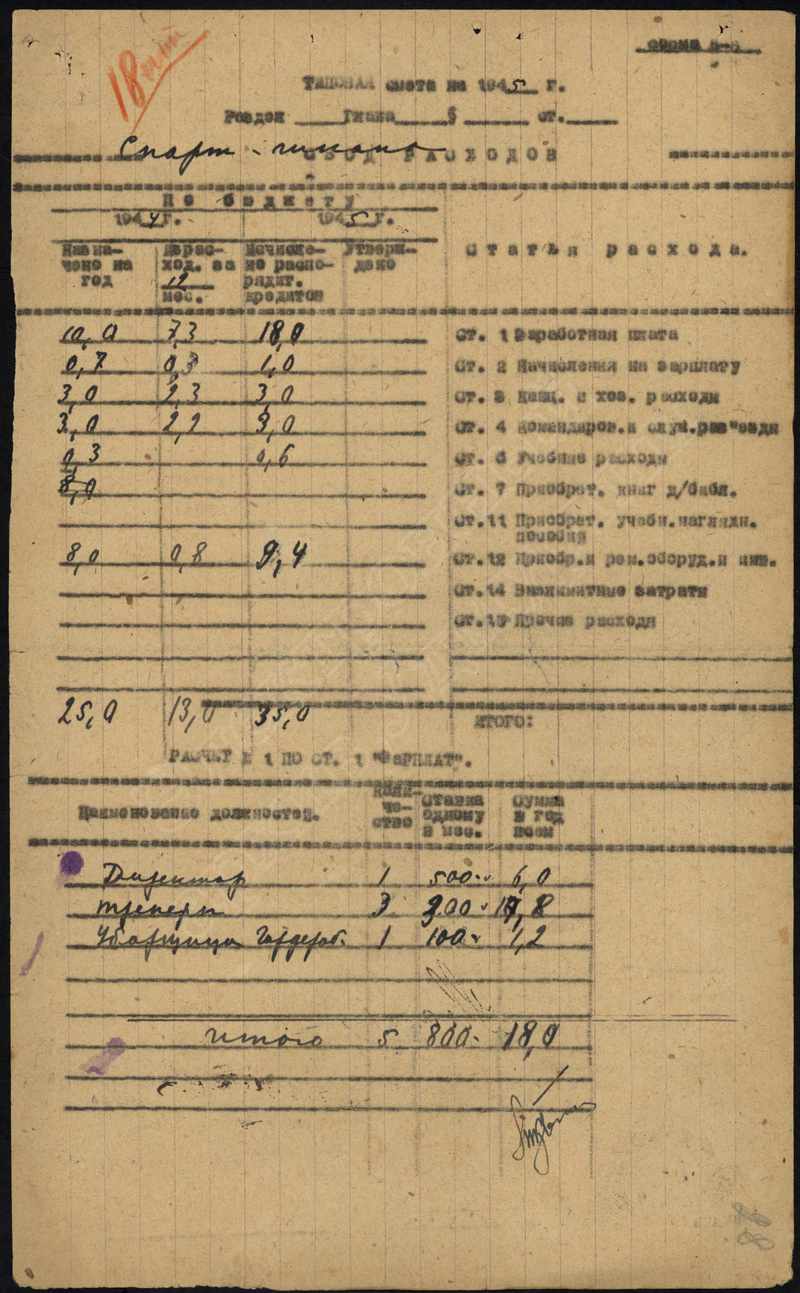 18
Форма
Типовая смета на 1945 г.
Раздел Глава § ст.
Спорт - школа
СВОД РАСХОДОВ
По бюджету
1944 г. 1945 г.
Назна- Израс- Исчисле- Утверж- Статья расхода.
чено на ход. за но распо- дено
год 12 рядит.
мес. кредитов
10,0 7,3 18,0 Ст. 1 Заработная плата
0,7 0,3 1,0 Ст. 2 Начисления на зарплату
3,0 2,3 3,0 Ст. 3 Канц. и хоз. расходы
3,0 2,2 3,0 Ст. 4 Командиров. и служ. раз"езды
0,3 0,6 Ст. 6 Учебные расходы
8,0 Ст. 7 Приобрет. книг д/библ.
Ст.11 Приобрет. учебн.наглядн.
пособия
8,0 0,8 9,4 Ст.12 Приобр.и рем.оборуд.и инв.
Ст.14 Внелимитные затраты
Ст.17 Прочие расходы
25,0 13,0 35,0 ИТОГО:
РАСЧЕТ № 1 ПО СТ. 1 "ЗАРПЛАТ".
Наименование должностей. Коли- Ставка Сумма
че- одному в год
ство в мес. всем
Директор 1 500 6,0
тренеры 3 ,8
Уборщица Гардероб. 1 100 1,2
Итого 5 800 18,0